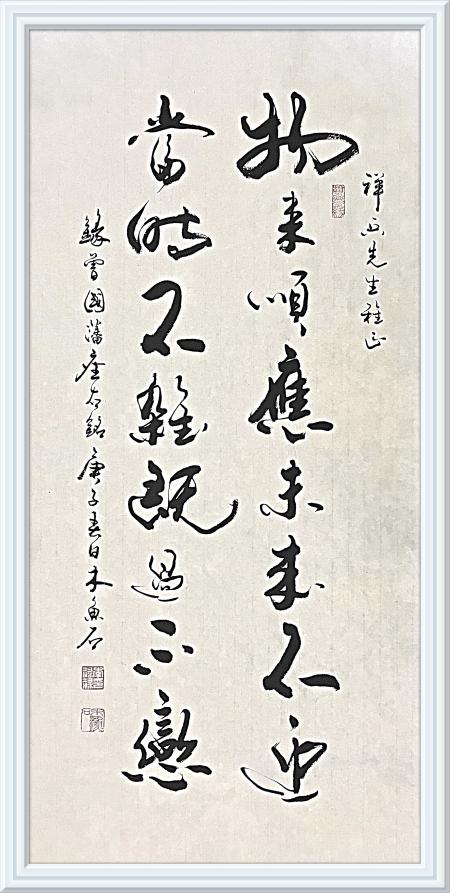 禅西先生雅正
物来順應未来不迎
當時不雜既過不戀
錄曾國藩座右銘庚子春日木魚石